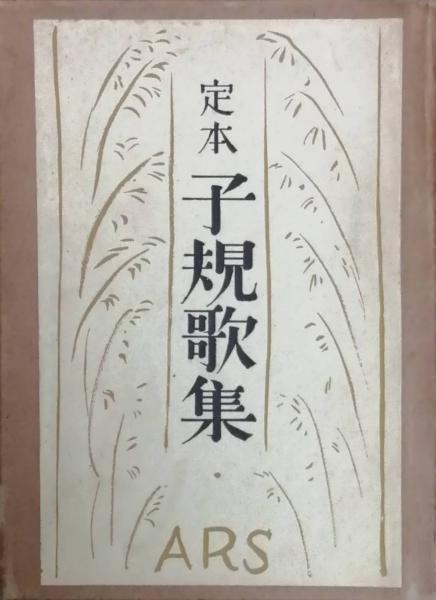 定本
子規歌集
ARS